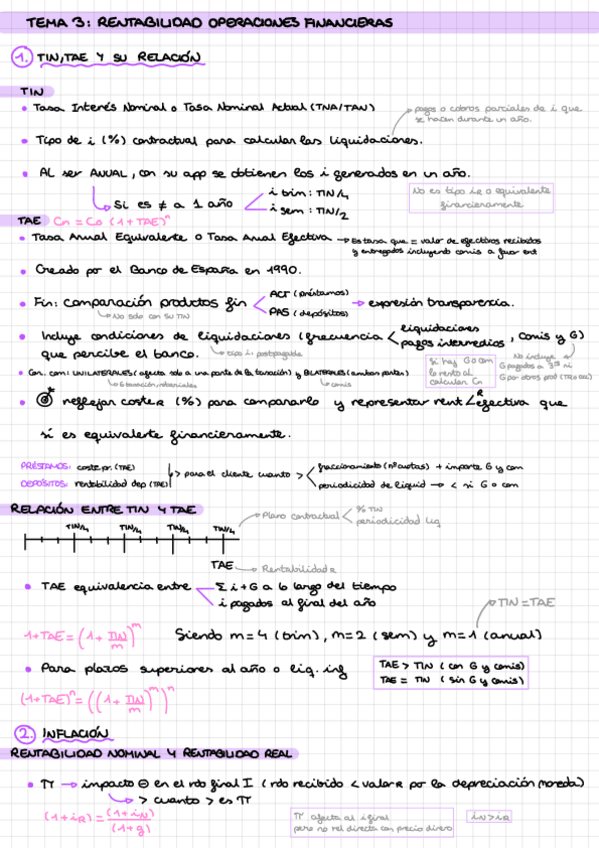 TEMA 3: RENTABILIDAD OPERACIONES FINANCIERAS
1. TIN, TAE Y SU RELACIÓN
TIN
• Tasa Interés Nominal o Tasa Nominal Actual (TNA/TAN)
pagos o cobros parciales de i que
se hacen durante un año.
• Tipo de i (%) contractual para calcular las liquidaciones.
• AL ser ANUAL, con su app se obtienen los i generados en un año.
Si es ≠ a 1 año
i trim: TIN/4
i sem: TIN/2
No es tipo iR o equivalente
financieramente
TAE Cn = Co (1+TAE)^n
• Tasa Anual Equivalente o Tasa Anual Efectiva → Es tasa que = valor de efectivos recibidos
y entregados incluyendo comis a favor ent
• Creado por el Banco de España en 1990.
• Fin: comparación productos fin
ACT (préstamos)
PAS (depósitos)
→ expresión transparencia.
No solo con su TIN
• Incluye condiciones de liquidaciones (frecuencia < liquidaciones
pagos intermedios, comis y G)
que percibe el banco.
tipo i: postpagable
No incluye
G pagados a 3os ni
G por otros prod
si hay G o com
lo resto al
calcular Cn
• Con. com: UNILATERALES (afecta solo a una parte de la transación) y BILATERALES (ambas partes)
comis
• reflejar coste R (%) para compararlo y representar rent efectiva que
R
sí es equivalente financieramente.
PRÉSTAMOS: coste pr. (TAE)
DEPÓSITOS: rentabilidad dep (TAE)
> para el cliente cuanto >
fraccionamiento (nº cuotas) + importe G y com
periodicidad de liquid → < si G o com
RELACIÓN ENTRE TIN Y TAE
Plano contractual < % TIN
periodicidad liq
TIN/4 TIN/4 TIN/4 TIN/4
TAE → Rentabilidad R
• TAE equivalencia entre
Σ i + G a lo largo del tiempo
i pagados al final del año
TIN = TAE
1+TAE = (1 + TIN/m)^m Siendo m=4 (trim), m=2 (sem) y m=1 (anual)
• Para plazos superiores al año o liq. inf
TAE > TIN (con G y comis)
TAE = TIN (sin G y comis)
(1+TAE)^n = ((1 + TIN/m)^m)^n
2. INFLACIÓN
RENTABILIDAD NOMINAL Y RENTABILIDAD REAL
• π → impacto ⊖ en el rdo final I (rdo recibido < valor R por la depreciación moneda)
> cuanto > es π
(1+iR) = (1+iN)/(1+g)
π afecta al i final
pero no rel directa con precio dinero
iN > iR